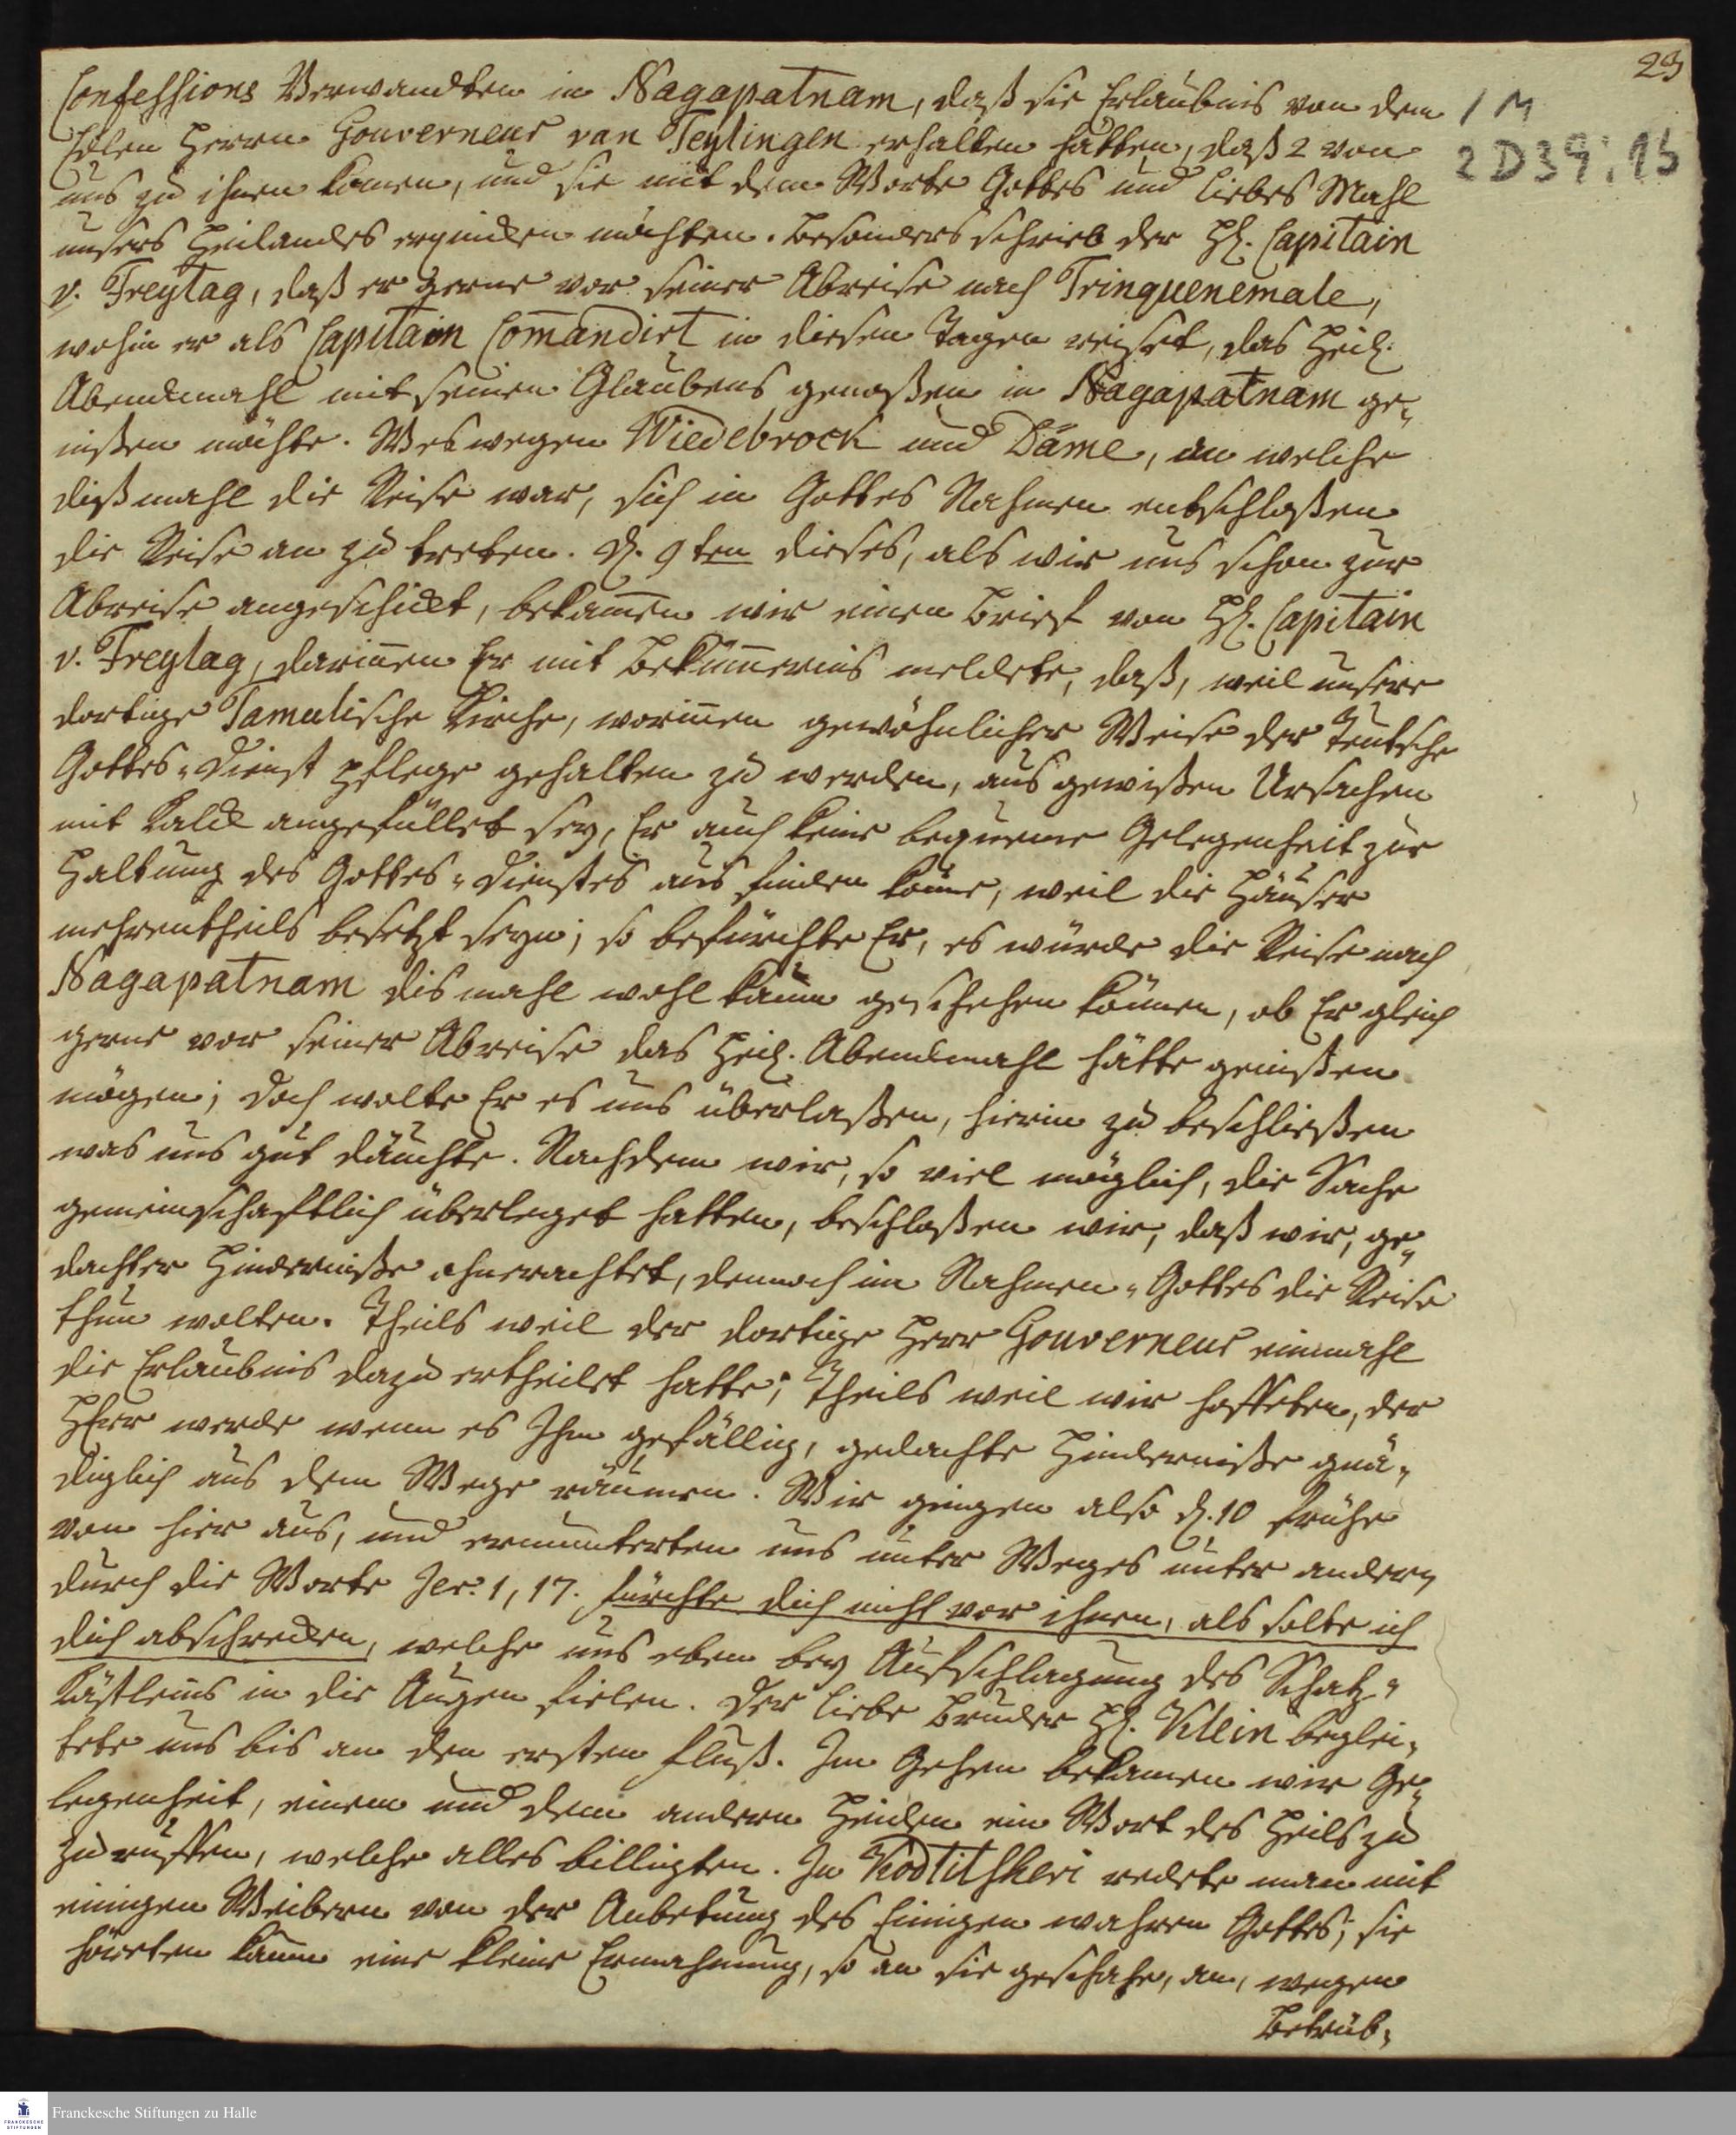 23
1 M
2 D 39 : 15
Confessions Verwandten in Nagapatnam, daß sie Erlaubnis von dem
Edlen Herrn Gouverneur van Teylingen erhalten hätten, daß 2 von
uns zu ihnen kämen, und sie mit dem Worte Gottes und Liebes Mahl
unsers Heilandes erquicken möchten. Besonders schrieb der H. Capitain
v. Freytag, daß er gerne vor seiner Abreise nach Trinquenemale,
wohin er als Capitain Com̄andirt in diesen Tagen reiset, das Heil.
Abendmahl mit seinen Glaubens genoßen in Nagapatnam ge„
nißen möchte. Weswegen Wiedebrock und Däme, an welche
dißmahl die Reise war, sich in Gottes Nahmen entschloßen
die Reise an zu treten. d. 9ten dieses, als wir uns schon zur
Abreise angeschickt, bekam̄en wir einen Brief von H. Capitain
v. Freytag, darin̄en Er mit Beküm̄ernis meldete, daß, weil unsere
dortige Tamulische Kirche, worin̄en gewöhnlicher Weise der Teutsche
Gottes„Dienst pflege gehalten zu werden, aus gewißen Ursachen
mit Kalck angefüllet sey, Er auch keine bequeme Gelegenheit zur
Haltung des Gottes„Dienstes aus finden kön̄e, weil die Häuser
mehrentheils besetzt seyn; so befürchte Er, es würde die Reise nach
Nagapatnam dismahl wohl kaum geschehen können, ob Er gleich
gerne vor seiner Abreise das Heil. Abendmahl hätte genißen
mögen; doch wolte Er es uns überlaßen, hierin zu beschließen
was uns gut däuchte. Nachdem wir, so viel möglich, die Sache
gemeinschaftlich überleget hatten, beschloßen wir, daß wir, ge„
dachter Hinderniße ohnerachtet, dennoch im Nahmen„Gottes die Reise
thun wolten. Theils weil der dortige Herr Gouverneur einmahl
die Erlaubnis dazu ertheilet hatte; Theils weil wir hoffeten, der
HErr werde wenn es Ihm gefällig, gedachte Hinderniße gnä„
diglich aus dem Wege räumen. Wir giengen also d. 10 frühe
von hier aus, und ermunterten uns unter Weges unter andern
durch die Worte Jer. 1, 17. fürchte dich nicht vor ihnen, als solte ich
dich abschrecken, welche uns eben bey Aufschlagung des Schatz„
Kästleins in die Augen fielen. Der liebe Bruder H. Klein beglei„
tete uns bis an den ersten Fluß. Im Gehen bekamen wir Ge„
legenheit, einem und dem andern Heiden ein Wort des Heils zu
zu ruffen, welche alles billigten. In Kodtitsheri redete man mit
einigen Weibern von der Anbetung des Einigen wahren Gottes; sie
höreten kaum eine kleine Ermahnung, so an sie geschahe, an, wegen
Betrüb„
Franckesche Stiftungen zu Halle